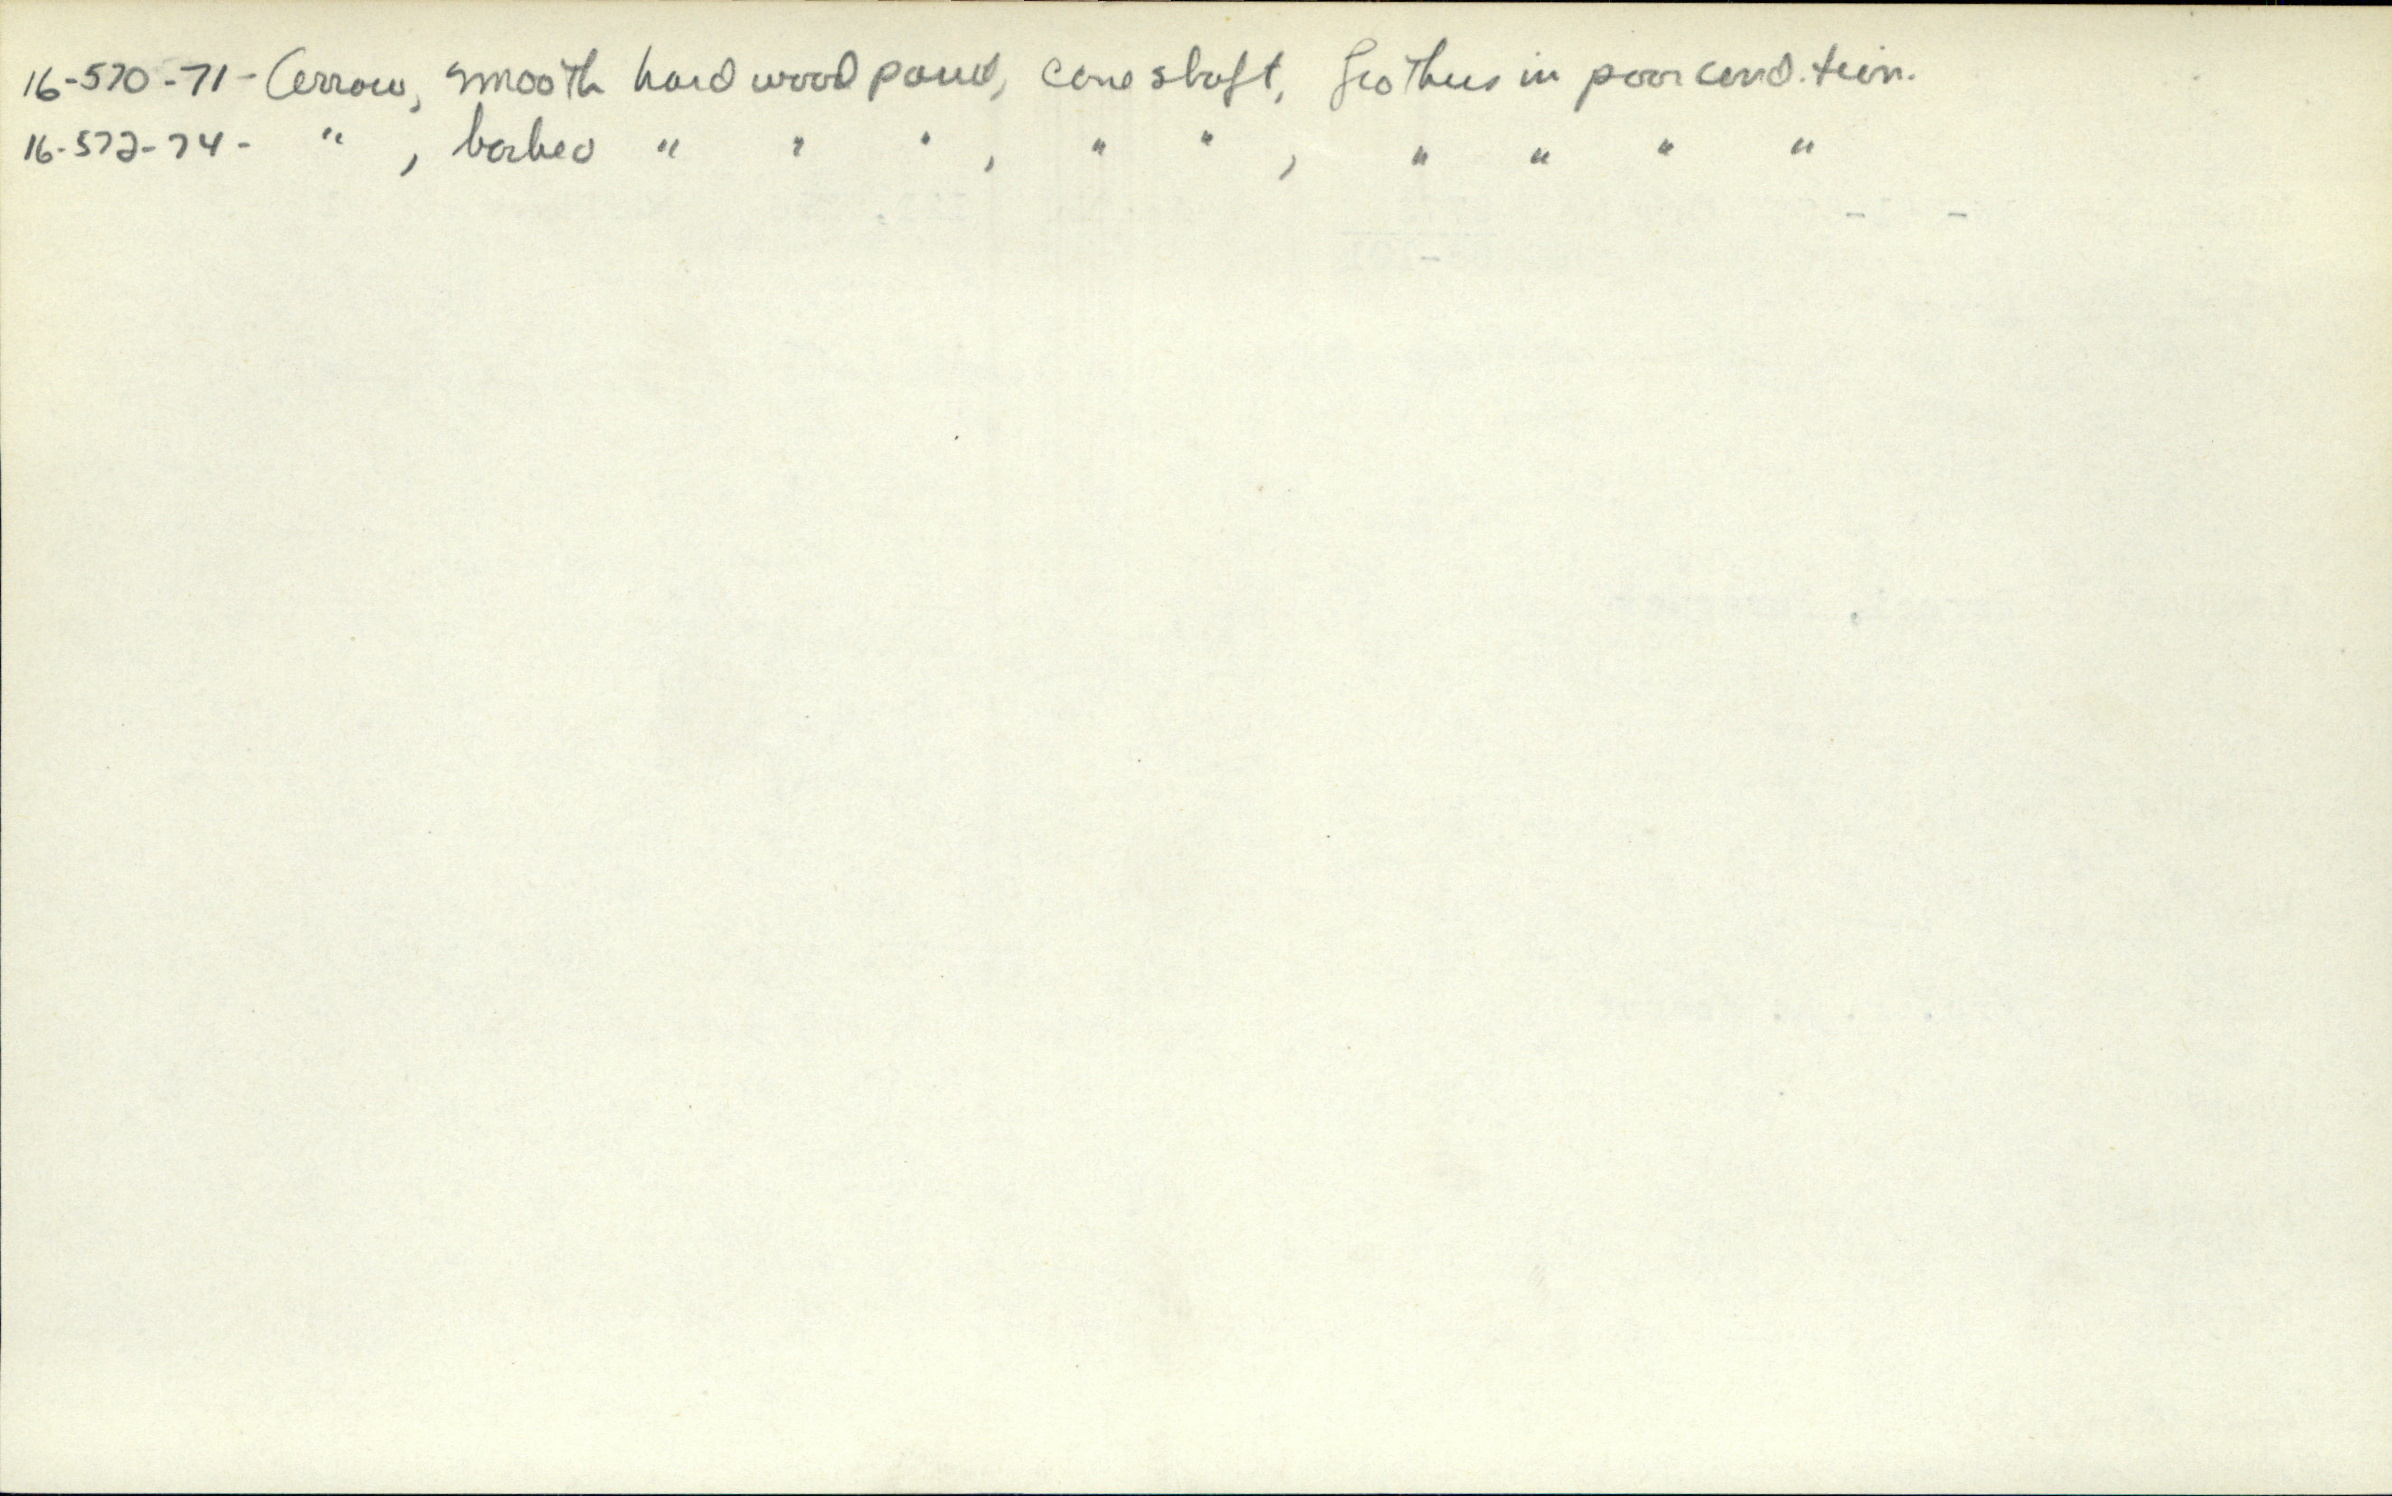 16-570-71- Arrow, smooth hard wood point, cane shaft, feathers in poor condition.
16-572-74- " , barbed " " " , " " , " " " "